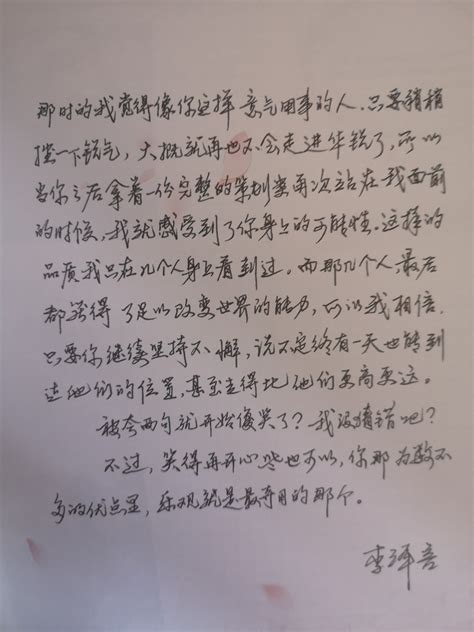 那时的我觉得像你这样意气用事的人.只要稍稍
挫一下锐气，大概就再也不会走进华锐了，所以
当你之后拿着一份完整的策划案再次站在我面前
的时候，我就感受到了你身上的可能性。这样的
品质我只在几个人身上看到过。而那几个人最后
都获得了足以改变世界的能力，所以我相信.
只要你继续坚持不懈，说不定终有一天也能到
达他们的位置，甚至走得比他们更高更远。
被夸两句就开始傻笑了？我没猜错吧？
不过，笑得再开心些也可以，你那为数不
多的优点里，乐观就是最夺目的那个。
李泽言